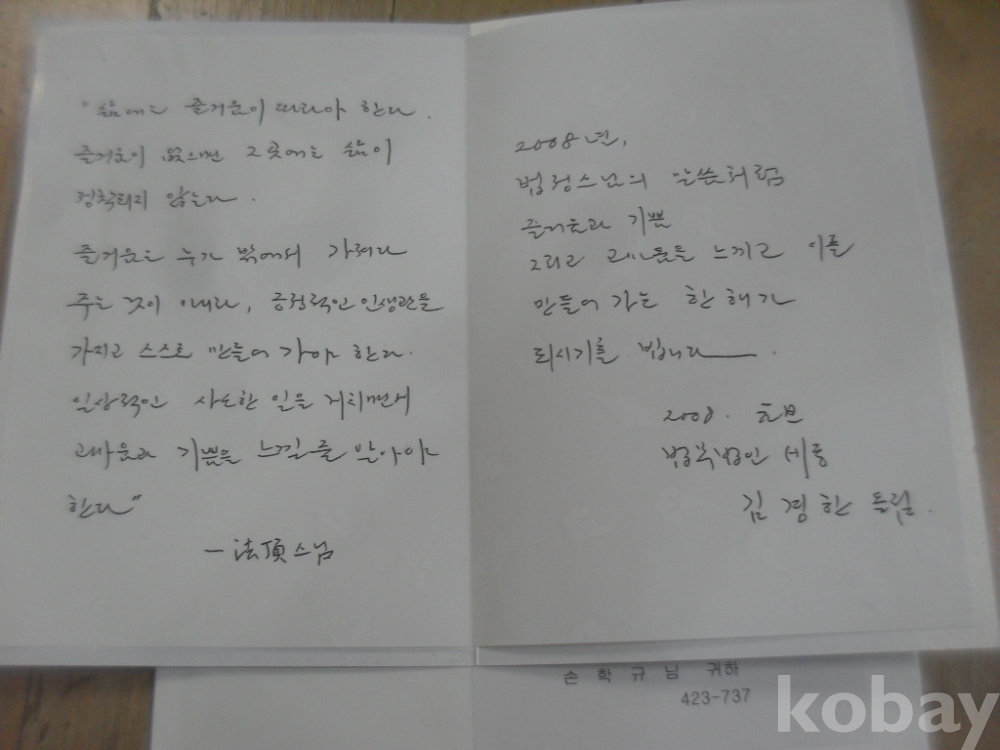 "삶에는 즐거움이 따라야 한다.
즐거움이 없으면 그곳에는 삶이
정착되지 않는다.
즐거움은 누가 밖에서 가져다
주는 것이 아니라, 긍정적인 인생관을
가지고 스스로 만들어 가야 한다.
일상적인 사소한 일을 거치면서
고마움과 기쁨을 느낄 줄 알아야
한다"
- 法頂스님
2008년,
법정스님의 말씀처럼
즐거움과 기쁨
그리고 고마움을 느끼고 이를
만들어 가는 한 해가
되시기를 빕니다.
2008. 초
법무법인 세종
김경한 드림.
손 학 규 님 귀하
423-737
kobay